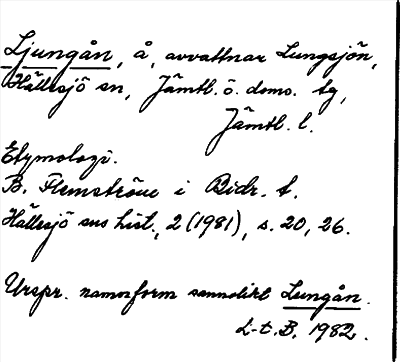 Ljungån, å, avvattnar Lungsjön,
Hällesjö sn, Jämtl. ö. doms. tg,
Jämtl. l.
Etymologi.
B. Flemström i Bidr. t.
Hällesjö sns hist., 2 (1981), s. 20, 26.
Urspr. namnform sannolikt Lungån.
L-t. B. 1982.